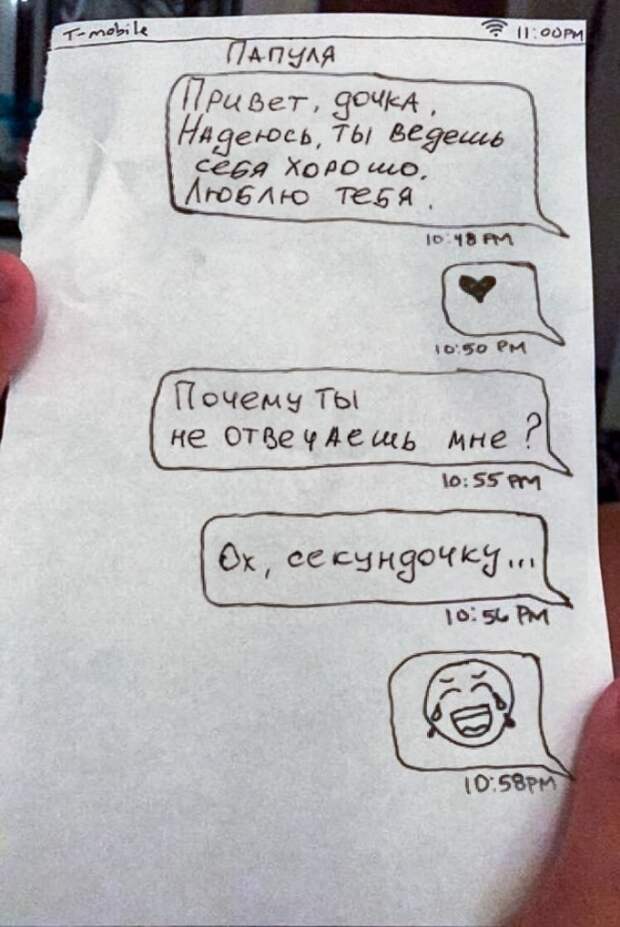 T-mobile 11:00PM
Папуля
Привет, дочка,
Надеюсь, ты ведешь
себя хорошо.
Люблю тебя.
10:48 PM
10:50 PM
Почему ты
не отвечаешь мне?
10:55 PM
Ох, секундочку...
10:56 PM
10:58PM